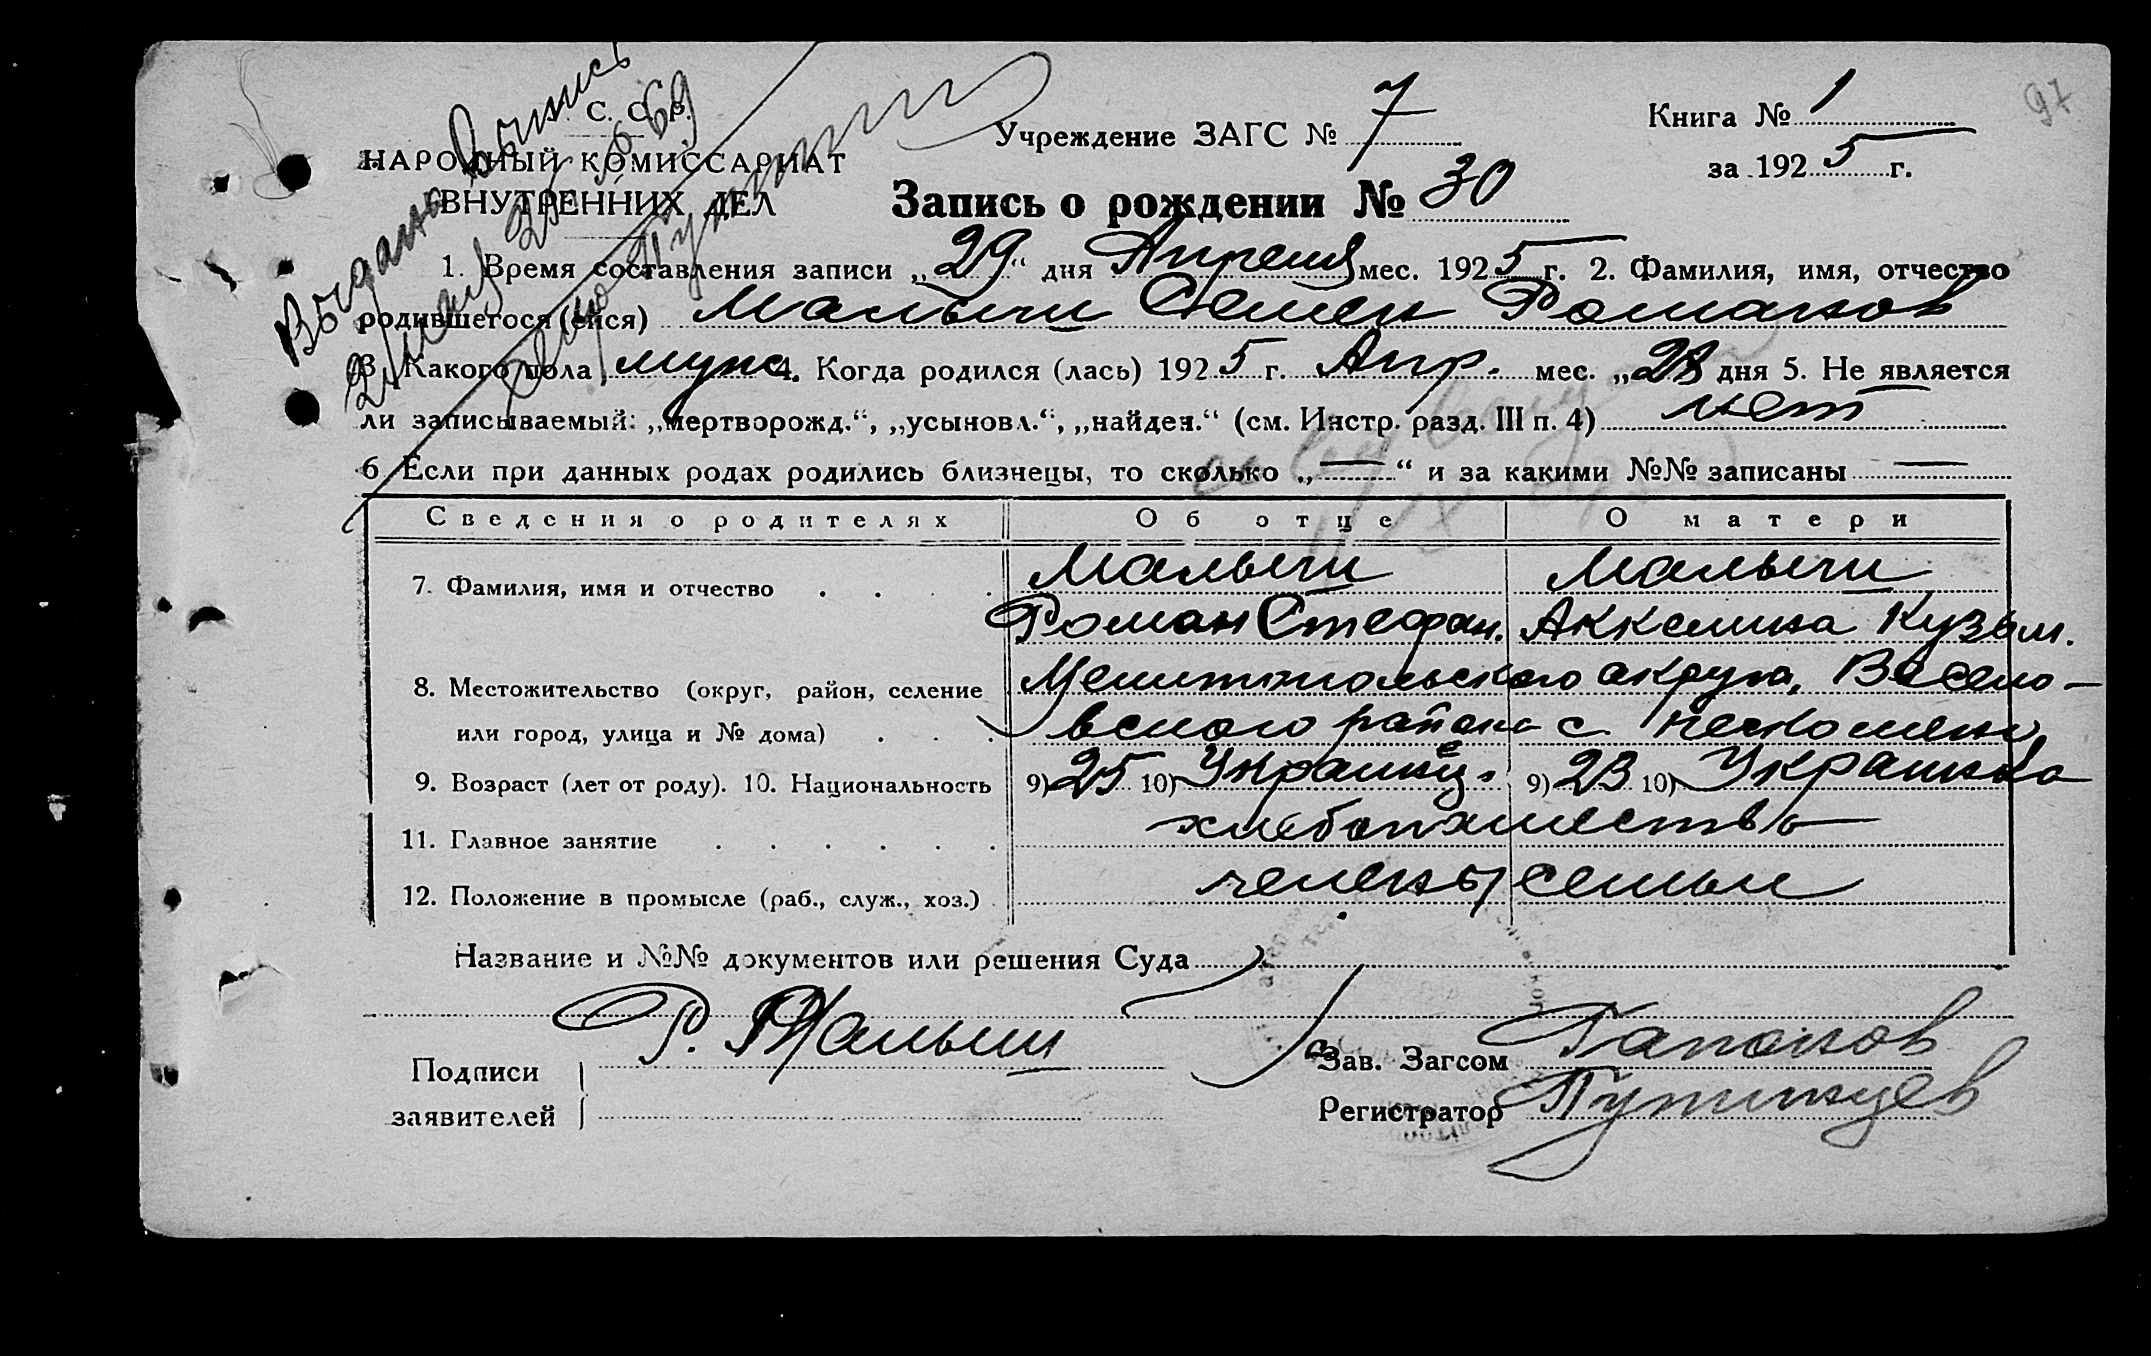 С. С. Р.
НАРОДНЫЙ КОМИССАРИАТ
ВНУТРЕННИХ ДЕЛ
Выдана Выпись
Учреждение ЗАГС № 7
Книга № 1
за 1925 г.
97
Запись о рождении № 30
1. Время составления записи „29“ дня Апреля мес. 1925 г. 2. Фамилия, имя, отчество
родившегося (ейся) Малыш Семен Романов
3. Какого пола муж. 4. Когда родился (лась) 1925 г. Апр. мес. „28 дня 5. Не является
ли записываемый: „мертворожд.“, „усыновл.“, „найден.“ (см. Инстр. разд. III п. 4) нет
6 Если при данных родах родились близнецы, то сколько „—“ и за какими №№ записаны —
Сведения о родителях Об отце О матери
7. Фамилия, имя и отчество . . . . Малыш Малыш
Роман Стефан. Аккелина Кузьм.
8. Местожительство (округ, район, селение округа, Весело-
или город, улица и № дома) . . . вского района с.
9. Возраст (лет от роду). 10. Национальность 9) 25 10) Украинец. 9) 23 10) Украинка
11. Главное занятие . . . . . . хлебопашество
12. Положение в промысле (раб., служ., хоз.) члены семьи
Название и №№ документов или решения Суда
Р. Малыш
Подписи
заявителей
Зав. Загсом Гапонов
Регистратор Путинцев